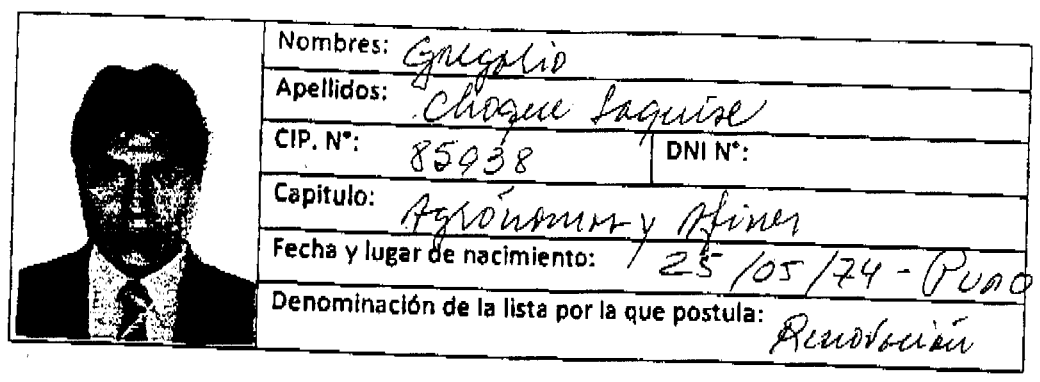 Nombres: Gregolio
Apellidos: Choque Saquise
CIP. N°: 85938 DNI N°:
Capitulo: Agrónomos y Afines
Fecha y lugar de nacimiento: 25/05/74 - PUNO
Denominación de la lista por la que postula: Renovación